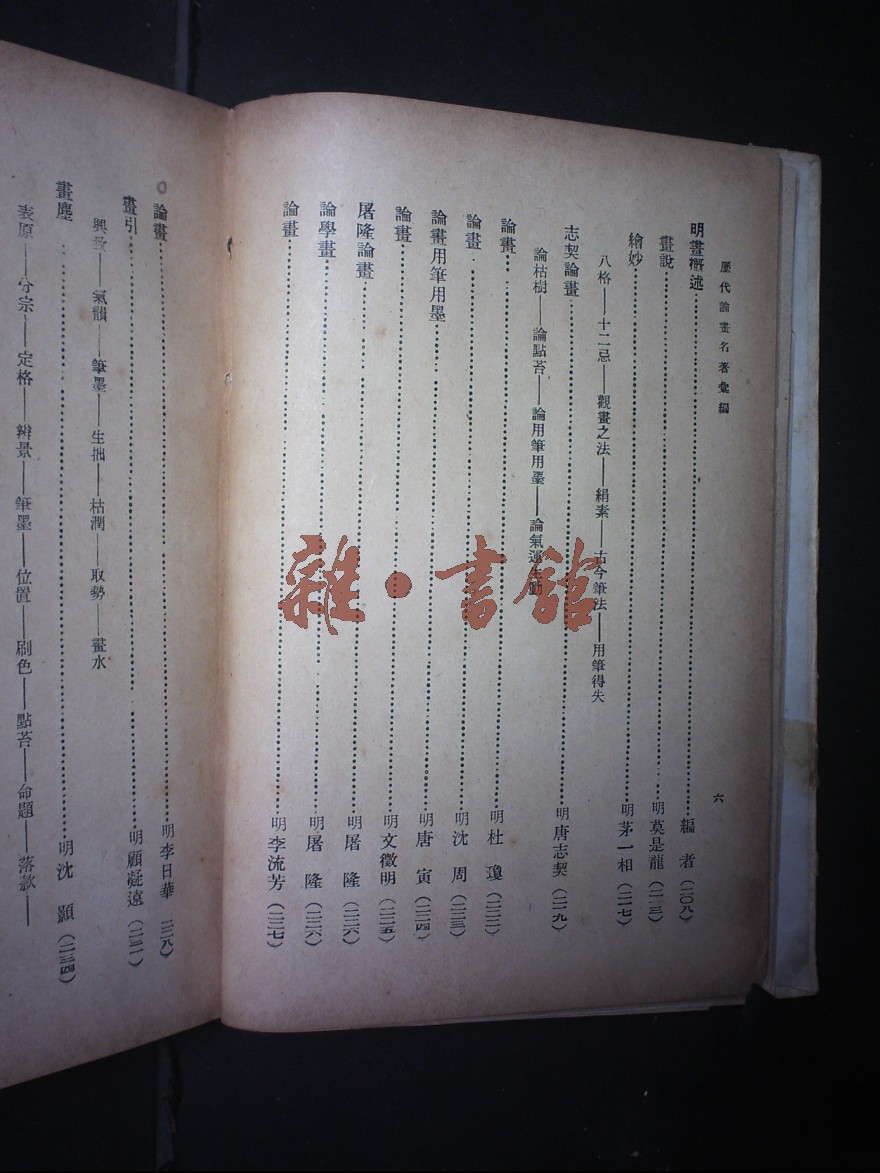 歷代論畫名著彙編
六
明畫概述……編者(二〇八)
畫說……明莫是龍(二一三)
繪妙……明茅一相(二一七)
八格——十二忌——觀畫之法——絹素——古今筆法——用筆得失
志契論畫……明唐志契(二一九)
論枯樹——論點苔——論用筆用墨——論氣運生動
論畫……明杜瓊(二二二)
論畫……明沈周(二二三)
論畫用筆用墨……明唐寅(二二四)
論畫……明文徵明(二二五)
屠隆論畫……明屠隆(二二六)
論學畫……明屠隆(二二六)
論畫……明李流芳(二二七)
論畫……明李日華(二二八)
畫引……明顧凝遠(二三一)
興致——氣韻——筆墨——生拙——枯潤——取勢——畫水
畫麈……明沈顥(二三四)
表原——分宗——定格——辨景——筆墨——位置——刷色——點苔——命題——落款——
雜·書館